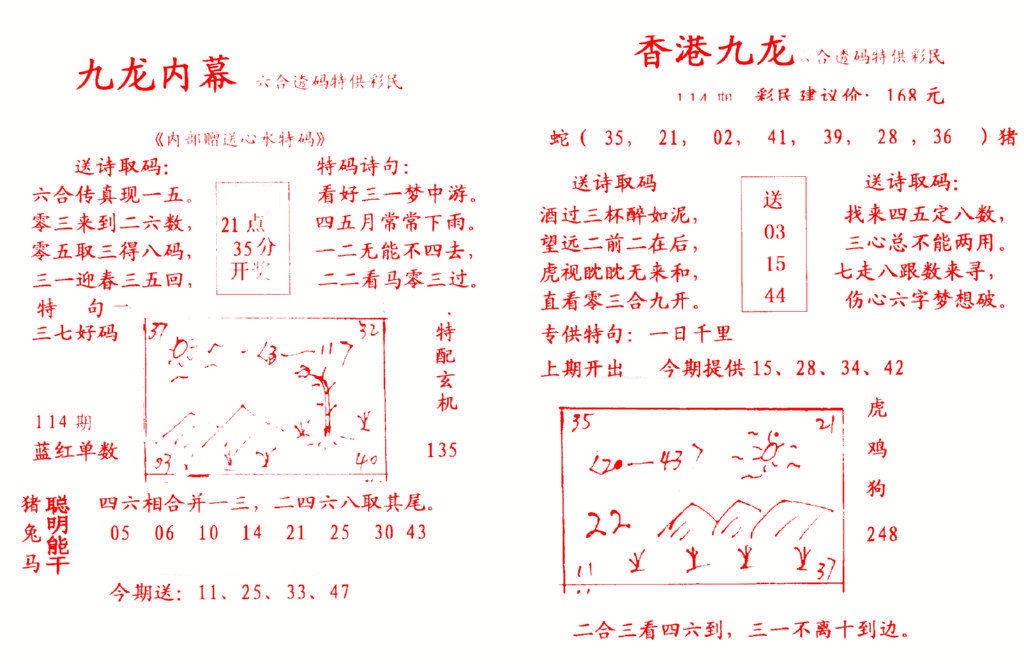 九龙内幕 六合透码特供彩民
《内部赠送心水特码》
送诗取码：
六合传真现一五。
零三来到二六数，
零五取三得八码，
三一迎春三五回，
特 句一
三七好码
21点
35分
开奖
特码诗句：
看好三一梦中游。
四五月常常下雨。
一二无能不四去，
二二看马零三过。
37 32
〈13—11〉
93 40
特配玄机
135
114期
蓝红单数
猪兔马
聪明能干
四六相合并一三，二四六八取其尾。
05 06 10 14 21 25 30 43
今期送：11、25、33、47
香港九龙 六合透码特供彩民
114期 彩民建议价：168元
蛇（ 35， 21， 02， 41， 39， 28 ，36 ）猪
送诗取码
酒过三杯醉如泥，
望远二前二在后，
虎视眈眈无来和，
直看零三合九开。
送
03
15
44
送诗取码：
找来四五定八数，
三心总不能两用。
七走八跟数来寻，
伤心六字梦想破。
专供特句：一日千里
上期开出 今期提供15、28、34、42
35 21
〈20—43〉
22
11 37
虎
鸡
狗
248
二合三看四六到，三一不离十到边。